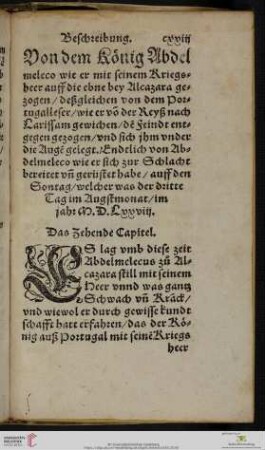 Beschreibung. cxviij
Von dem König Abdel
meleco wie er mit seinem Kriegs-
heer auff die ebne bey Alcazara ge-
zogen / deßgleichen von dem Por-
tugalleser / wie er vö der Reyß nach
Larissam gewichen / dē Feindt ent-
gegen gezogen / vnd sich jhm vnder
die Auge gelegt. Endtlich von Ab-
delmeleco wie er sich zur Schlacht
bereitet vñ gerüstet habe / auff den
Sontag / welcher was der dritte
Tag im Augstmonat / im
jahr M. D. Lxxviij.
Das Zehende Capitel.
ES lag vmb diese zeit
Abdelmelecus zů Al-
cazara still mit seinem
Heer vnnd was gantz
Schwach vñ Kräck /
vnd wiewol er durch gewisse kundt
schafft hatt erfahren / das der Kö-
nig auß Portugal mit seinē Kriegs
heer